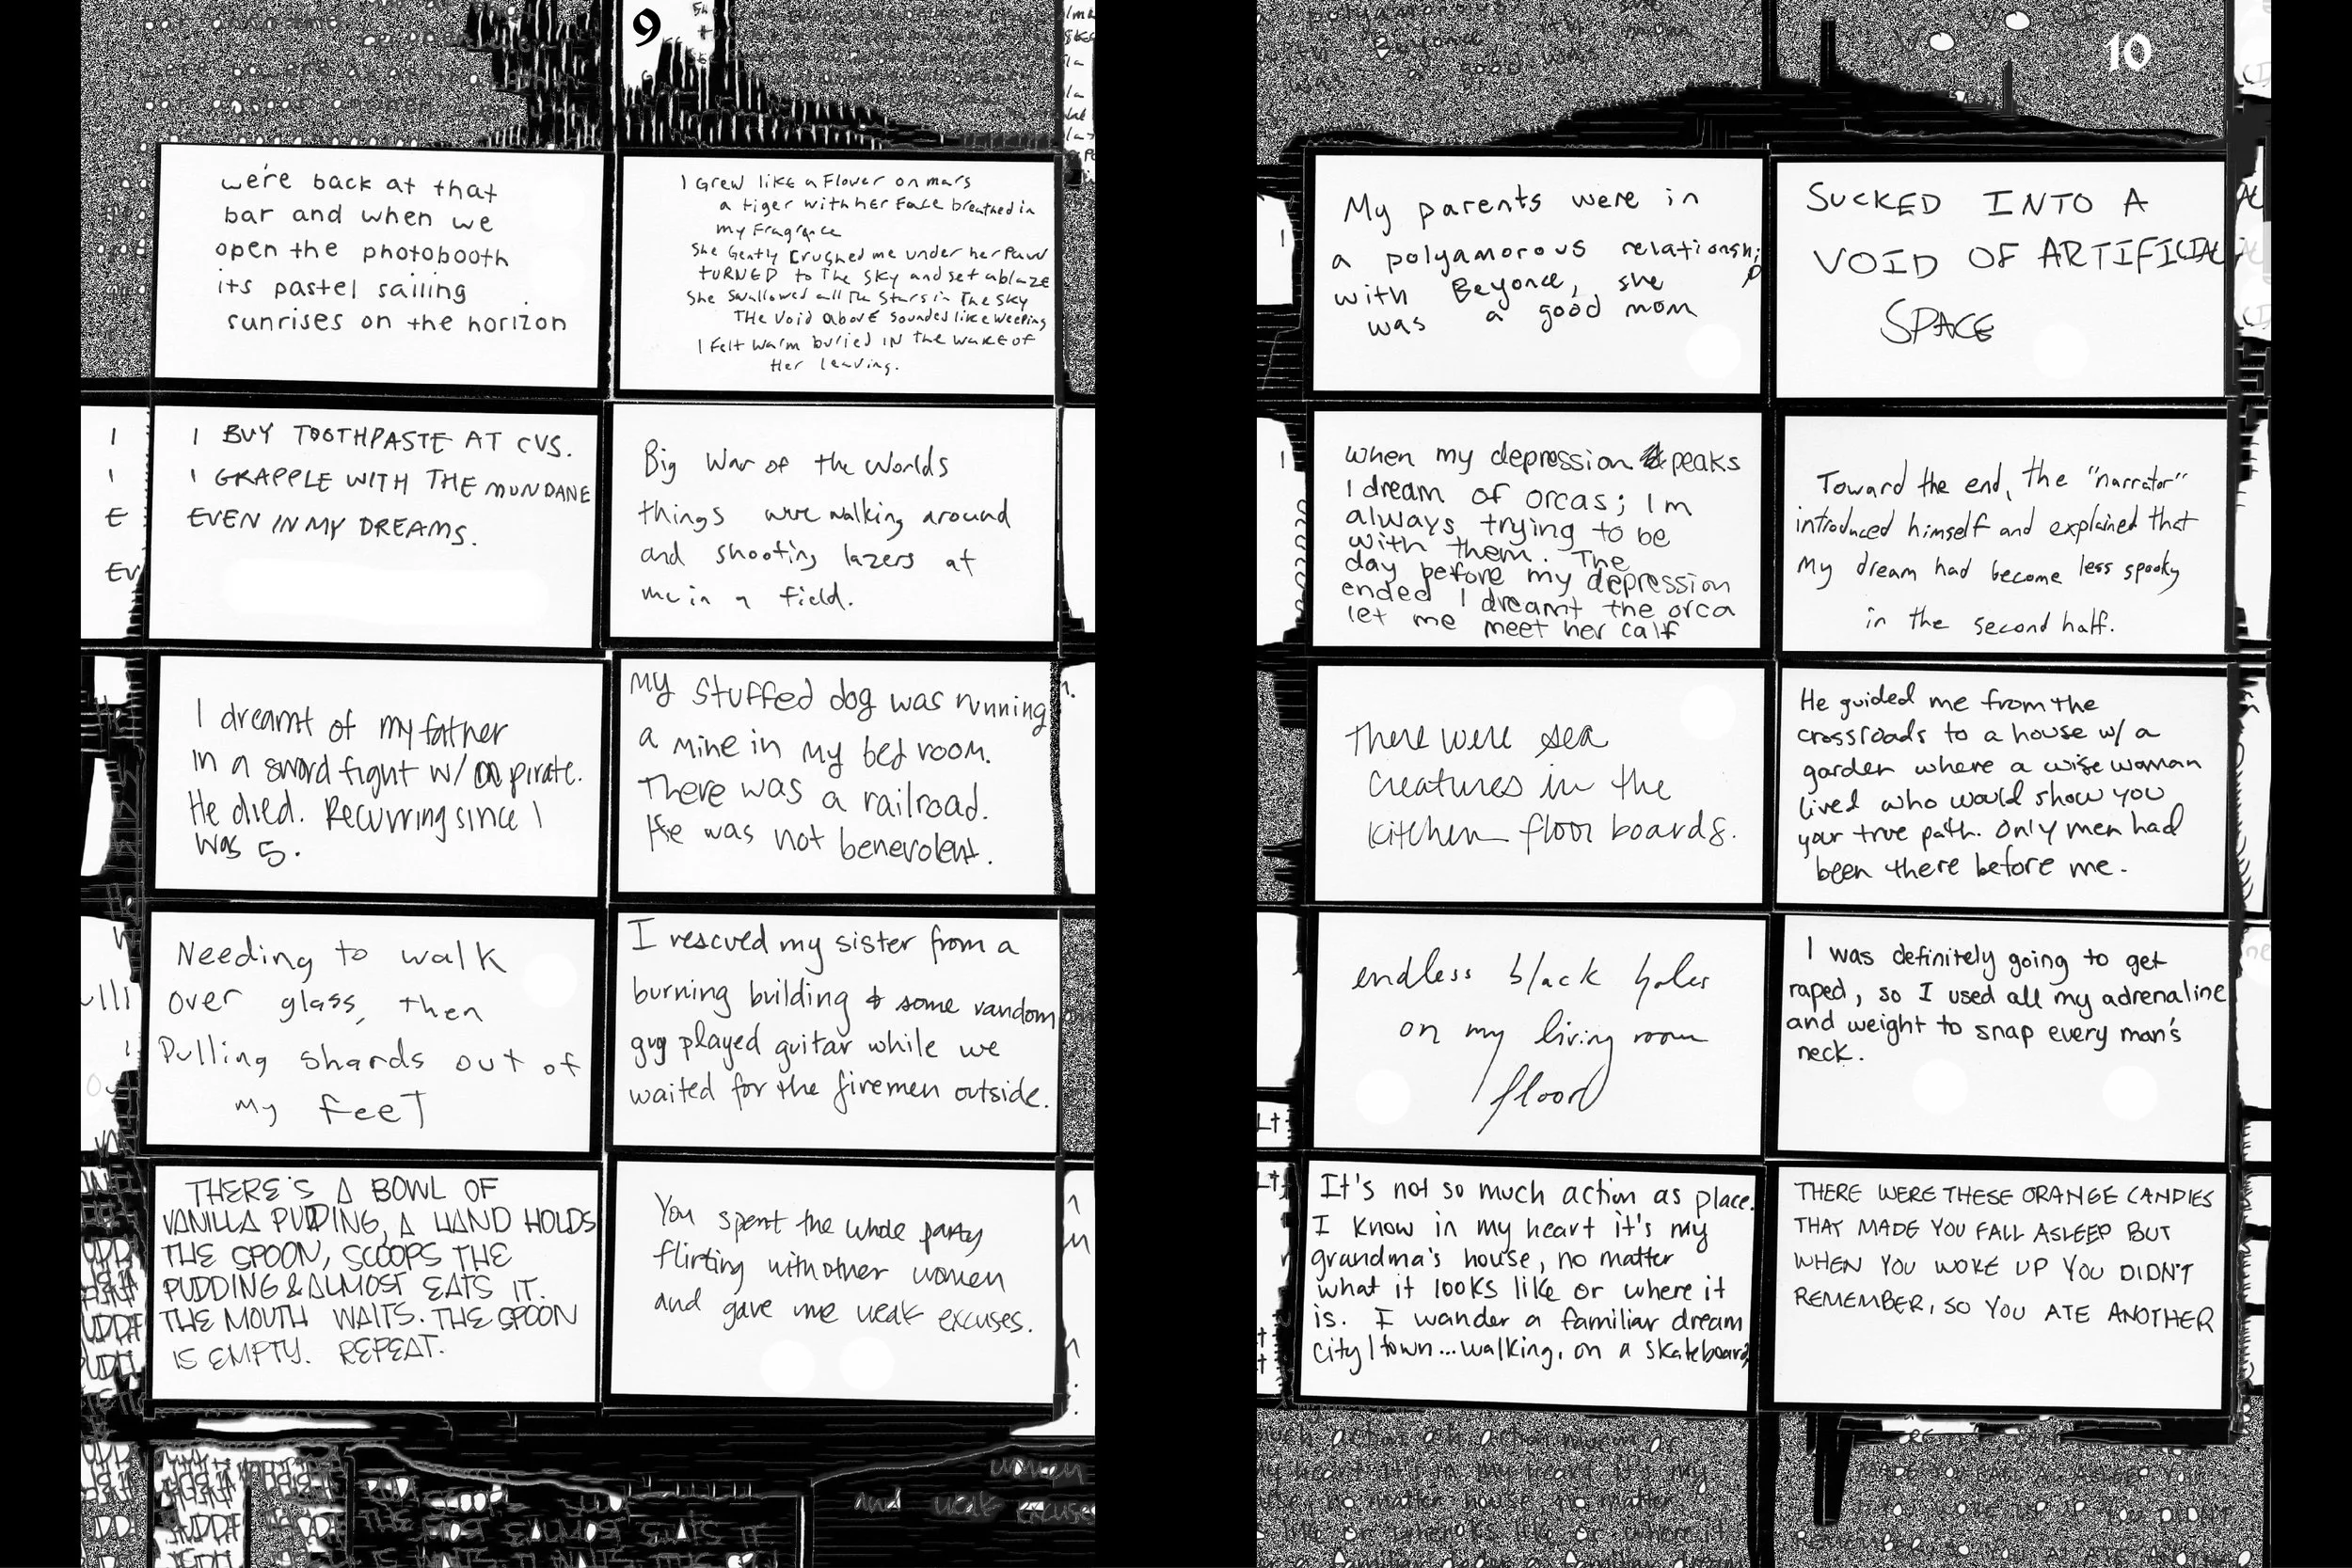 9
we're back at that
bar and when we
open the photobooth
its pastel sailing
sunrises on the horizon
I Grew like a Flower on mars
a tiger with her Face breathed in
my Fragrance
She Gently Crushed me under her Paw
TURNED to The SKY and set ablaze
She Swallowed all The Stars in The SKY
THe Void above Sounded like weeping
I Felt warm buried IN the wake of
Her leaving.
I BUY TOOTHPASTE AT CVS.
I GRAPPLE WITH THE MUNDANE
EVEN IN MY DREAMS.
Big War of the Worlds
things were walking around
and shooting lazers at
me in a field.
I dreamt of my father
in a sword fight w/ a pirate.
He died. Recurring since I
was 5.
My Stuffed dog was running
a mine in my bed room.
There was a railroad.
He was not benevolent.
Needing to walk
over glass, then
Pulling shards out of
my feet
I rescued my sister from a
burning building & some random
guy played guitar while we
waited for the firemen outside.
THERE'S A BOWL OF
VANILLA PUDDING, A HAND HOLDS
THE SPOON, SCOOPS THE
PUDDING & ALMOST EATS IT.
THE MOUTH WAITS. THE SPOON
IS EMPTY. REPEAT.
You spent the whole party
flirting with other women
and gave me weak excuses.
women
and weak excuses
10
My parents were in
a polyamorous relationship
with Beyonce, she
was a good mom
SUCKED INTO A
VOID OF ARTIFICIAL
SPACE
when my depression peaks
I dream of orcas; Im
always trying to be
with them. The
day before my depression
ended I dreamt the orca
let me meet her calf
Toward the end, the "narrator"
introduced himself and explained that
my dream had become less spooky
in the second half.
There were sea
creatures in the
kitchen floor boards.
He guided me from the
crossroads to a house w/ a
garden where a wise woman
lived who would show you
your true path. Only men had
been there before me.
endless black holes
on my living room
floor
I was definitely going to get
raped, so I used all my adrenaline
and weight to snap every man's
neck.
It's not so much action as place.
I know in my heart it's my
grandma's house, no matter
what it looks like or where it
is. I wander a familiar dream
city/town...walking, on a skateboard,
THERE WERE THESE ORANGE CANDIES
THAT MADE YOU FALL ASLEEP BUT
WHEN YOU WOKE UP YOU DIDN'T
REMEMBER, SO YOU ATE ANOTHER